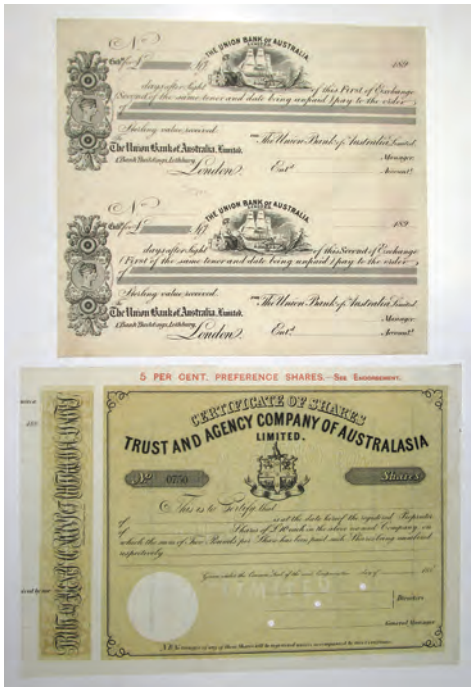 No
THE UNION BANK OF AUSTRALIA
LONDON
189
Exch. for £
days after Sight of this First of Exchange
(Second of the same tenor and date being unpaid) pay to the order
of
Sterling value received.
To
The Union Bank of Australia, Limited,
1 Bank Buildings, Lothbury,
London.
FOR The Union Bank of Australia Limited.
Manager.
Entd
Accountt
No
THE UNION BANK OF AUSTRALIA
LONDON
189
Exch. for £
days after Sight of this Second of Exchange
(First of the same tenor and date being unpaid) pay to the order
of
Sterling value received.
To
The Union Bank of Australia, Limited,
1 Bank Buildings, Lothbury,
London.
FOR The Union Bank of Australia Limited.
Manager.
Entd
Accountt
5 PER CENT. PREFERENCE SHARES.—SEE ENDORSEMENT.
CERTIFICATE OF SHARES
TRUST AND AGENCY COMPANY OF AUSTRALASIA
LIMITED.
No. 0750
Shares
This is to Certify that
of is at the date hereof the registered Proprietor
of Shares of £10 each in the above named Company, on
which the sum of Two Pounds per Share has been paid, such Shares being numbered
respectively
Given under the Common Seal of the said Corporation day of 188
Directors
General Manager